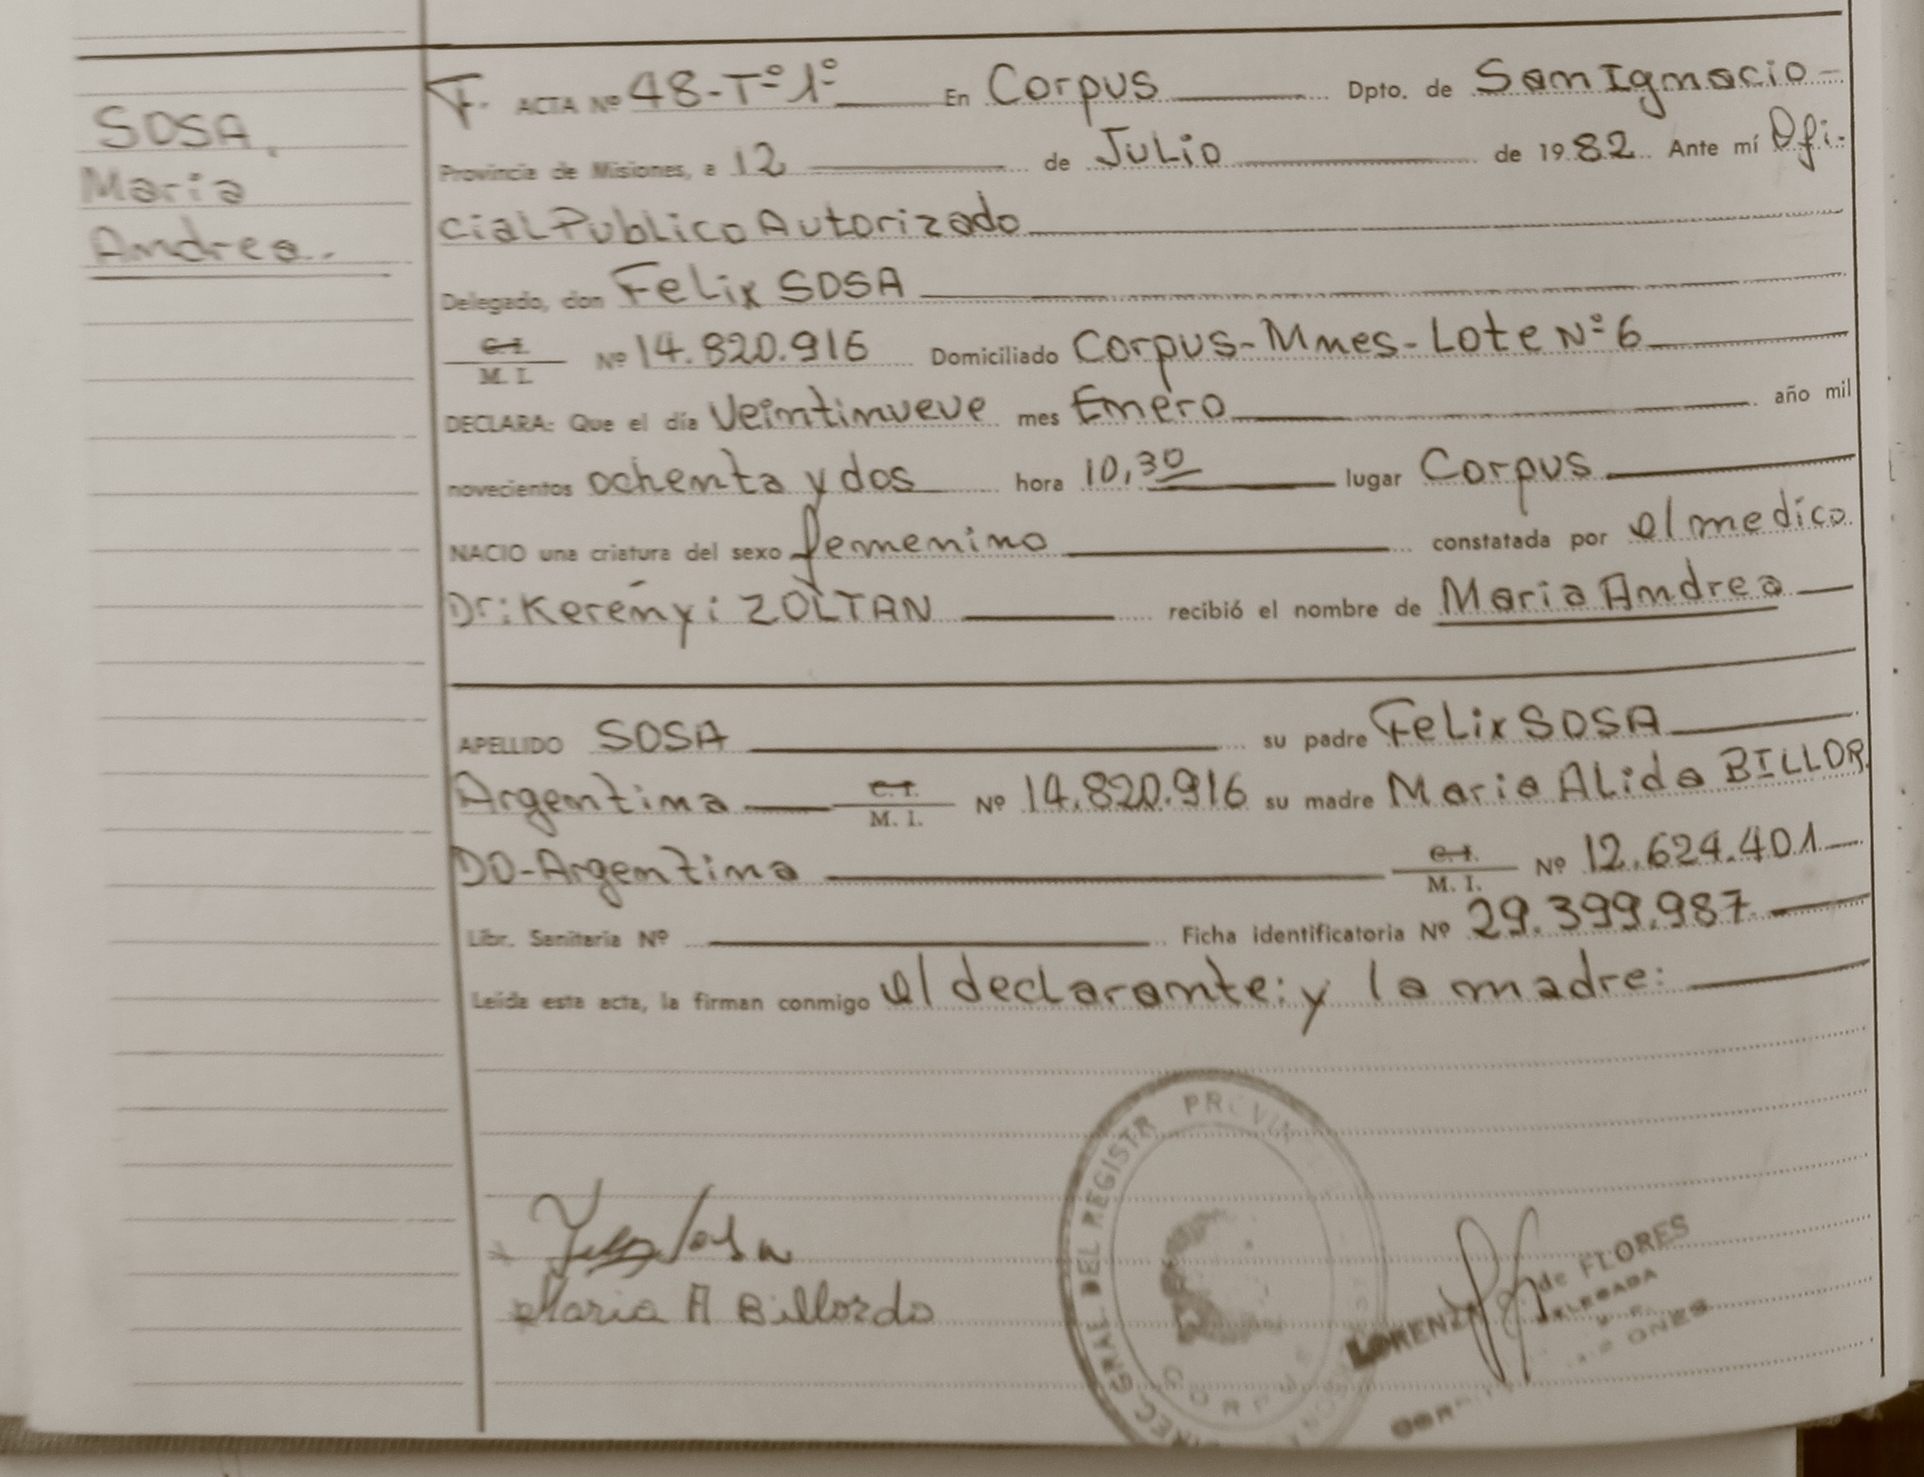 SOSA,
Maria
Andrea.
F. ACTA Nº 48-Tº1º En Corpus Dpto. de San Ignacio
Provincia de Misiones, a 12 de Julio de 1982 Ante mí Ofi-
cial Publico Autorizado
Delegado, don Felix SOSA
C.I. M. I. Nº 14.820.916 Domiciliado Corpus-Mnes-Lote Nº 6
DECLARA: Que el día Veintinueve mes Enero año mil
novecientos ochenta y dos hora 10,30 lugar Corpus
NACIO una criatura del sexo femenino constatada por el medico
Dr: Kerenyi ZOLTAN recibió el nombre de Maria Andrea
APELLIDO SOSA su padre Felix SOSA
Argentina C.I. M. I. Nº 14.820.916 su madre Maria Alida BILLOR
DO-Argentina C.I. M. I. Nº 12.624.401
Libr. Sanitaria Nº Ficha identificatoria Nº 29.399.987
Leída esta acta, la firman conmigo el declarante: y la madre:
Maria A Billordo
DIREC GRAL DEL REGISTR PROVIN
CORPUS
LORENZA de FLORES
DELEGADA